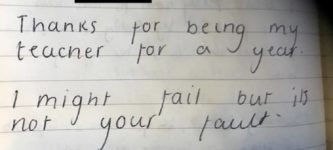 Thanks for being my
teacher for a year.
I might fail but its
not your fault.